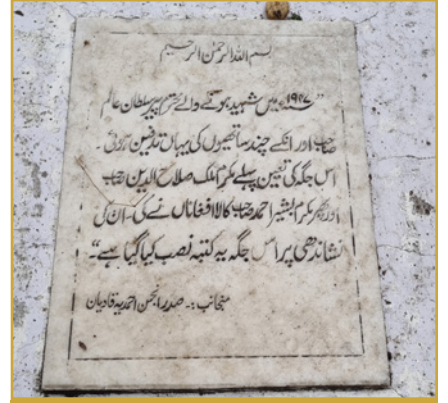 بسم اللہ الرحمٰن الرحیم
"۱۹۴۷ء میں شہید ہونے والے محترم پیر سلطان عالم
صاحب اور انکے چند ساتھیوں کی یہاں تدفین ہوئی۔
اس جگہ کی تعیین پہلے مکرم ملک صلاح الدین صاحب
اور پھر مکرم بشیر احمد صاحب کالا افغاناں نے کی۔ ان کی
نشاندھی پر اس جگہ یہ کتبہ نصب کیا گیا ہے"
منجانب:۔ صدر انجمن احمدیہ قادیان